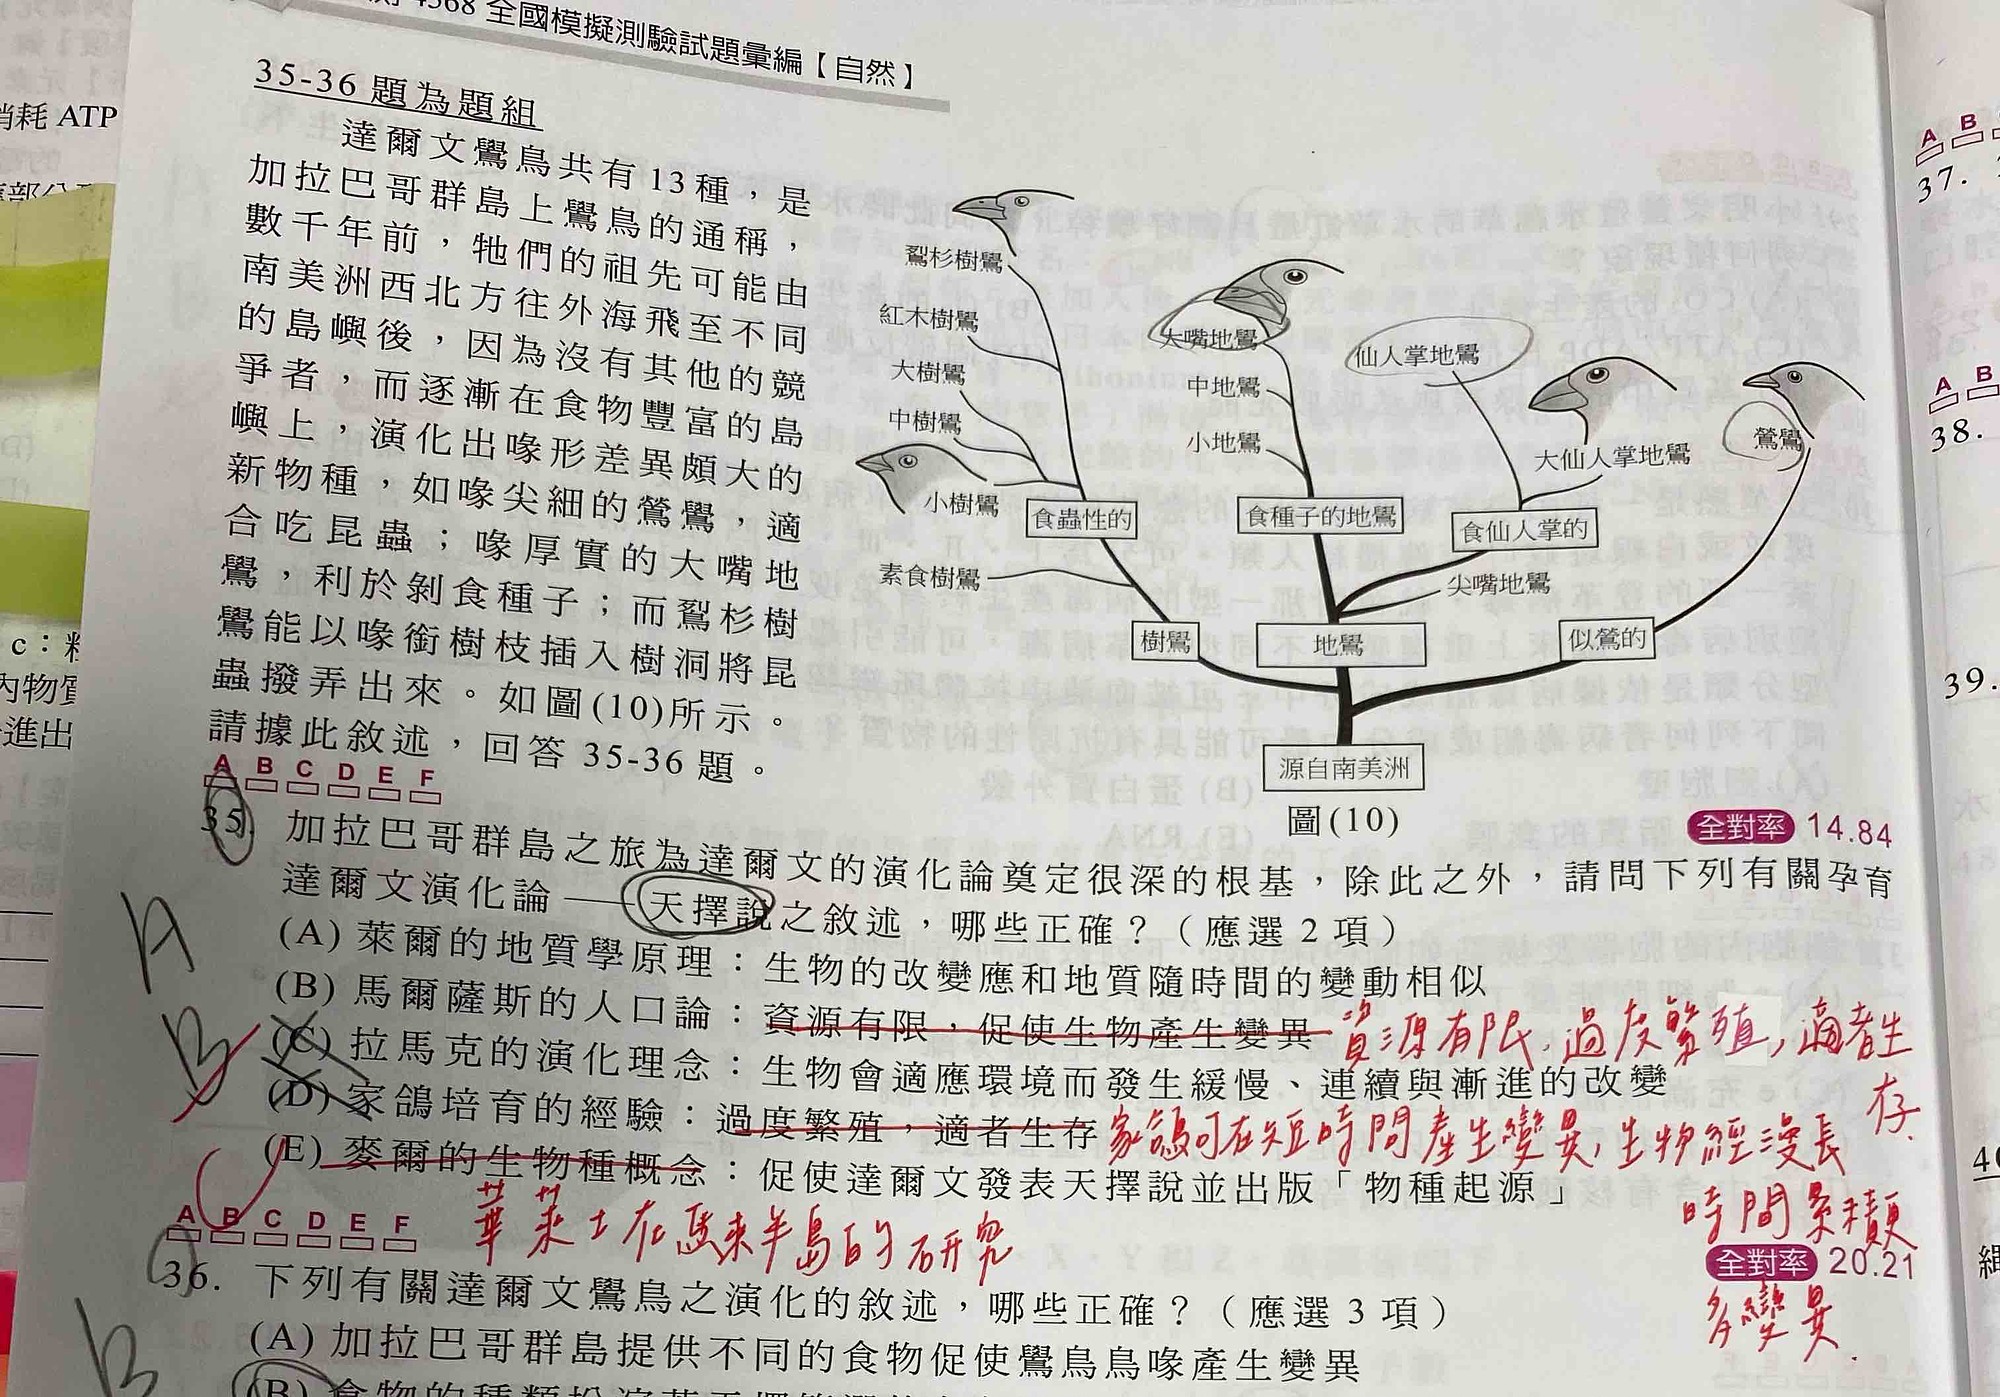 4568 全國模擬測驗試題彙編【自然】
35-36 題為題組
達爾文鷽鳥共有13種，是
加拉巴哥群島上鷽鳥的通稱，
數千年前，牠們的祖先可能由
南美洲西北方往外海飛至不同
的島嶼後，因為沒有其他的競
爭者，而逐漸在食物豐富的島
嶼上，演化出喙形差異頗大的
新物種，如喙尖細的鶯鷽，適
合吃昆蟲；喙厚實的大嘴地
鷽，利於剝食種子；而鴷杉樹
鷽能以喙銜樹枝插入樹洞將昆
蟲撥弄出來。如圖(10)所示。
請據此敘述，回答 35-36 題。
鴷杉樹鷽
紅木樹鷽
大樹鷽
中樹鷽
小樹鷽
食蟲性的
素食樹鷽
樹鷽
大嘴地鷽
中地鷽
小地鷽
食種子的地鷽
仙人掌地鷽
大仙人掌地鷽
食仙人掌的
尖嘴地鷽
地鷽
鶯鷽
似鶯的
源自南美洲
圖(10)
A B C D E F
全對率 14.84
35. 加拉巴哥群島之旅為達爾文的演化論奠定很深的根基，除此之外，請問下列有關孕育
達爾文演化論——天擇說之敘述，哪些正確？（應選 2 項）
(A) 萊爾的地質學原理：生物的改變應和地質隨時間的變動相似
(B) 馬爾薩斯的人口論：資源有限，促使生物產生變異 資源有限，過度繁殖，適者生
存.
(C) 拉馬克的演化理念：生物會適應環境而發生緩慢、連續與漸進的改變
(D) 家鴿培育的經驗：過度繁殖，適者生存 家鴿可在短時間產生變異，生物經漫長
時間累積更
多變異.
(E) 麥爾的生物種概念：促使達爾文發表天擇說並出版「物種起源」
華萊士在馬來半島的研究
A
B
A B C D E F
全對率 20.21
36. 下列有關達爾文鷽鳥之演化的敘述，哪些正確？（應選 3 項）
(A) 加拉巴哥群島提供不同的食物促使鷽鳥鳥喙產生變異
B
消耗 ATP
c：
進出
A B
37.
A B
38.
39.